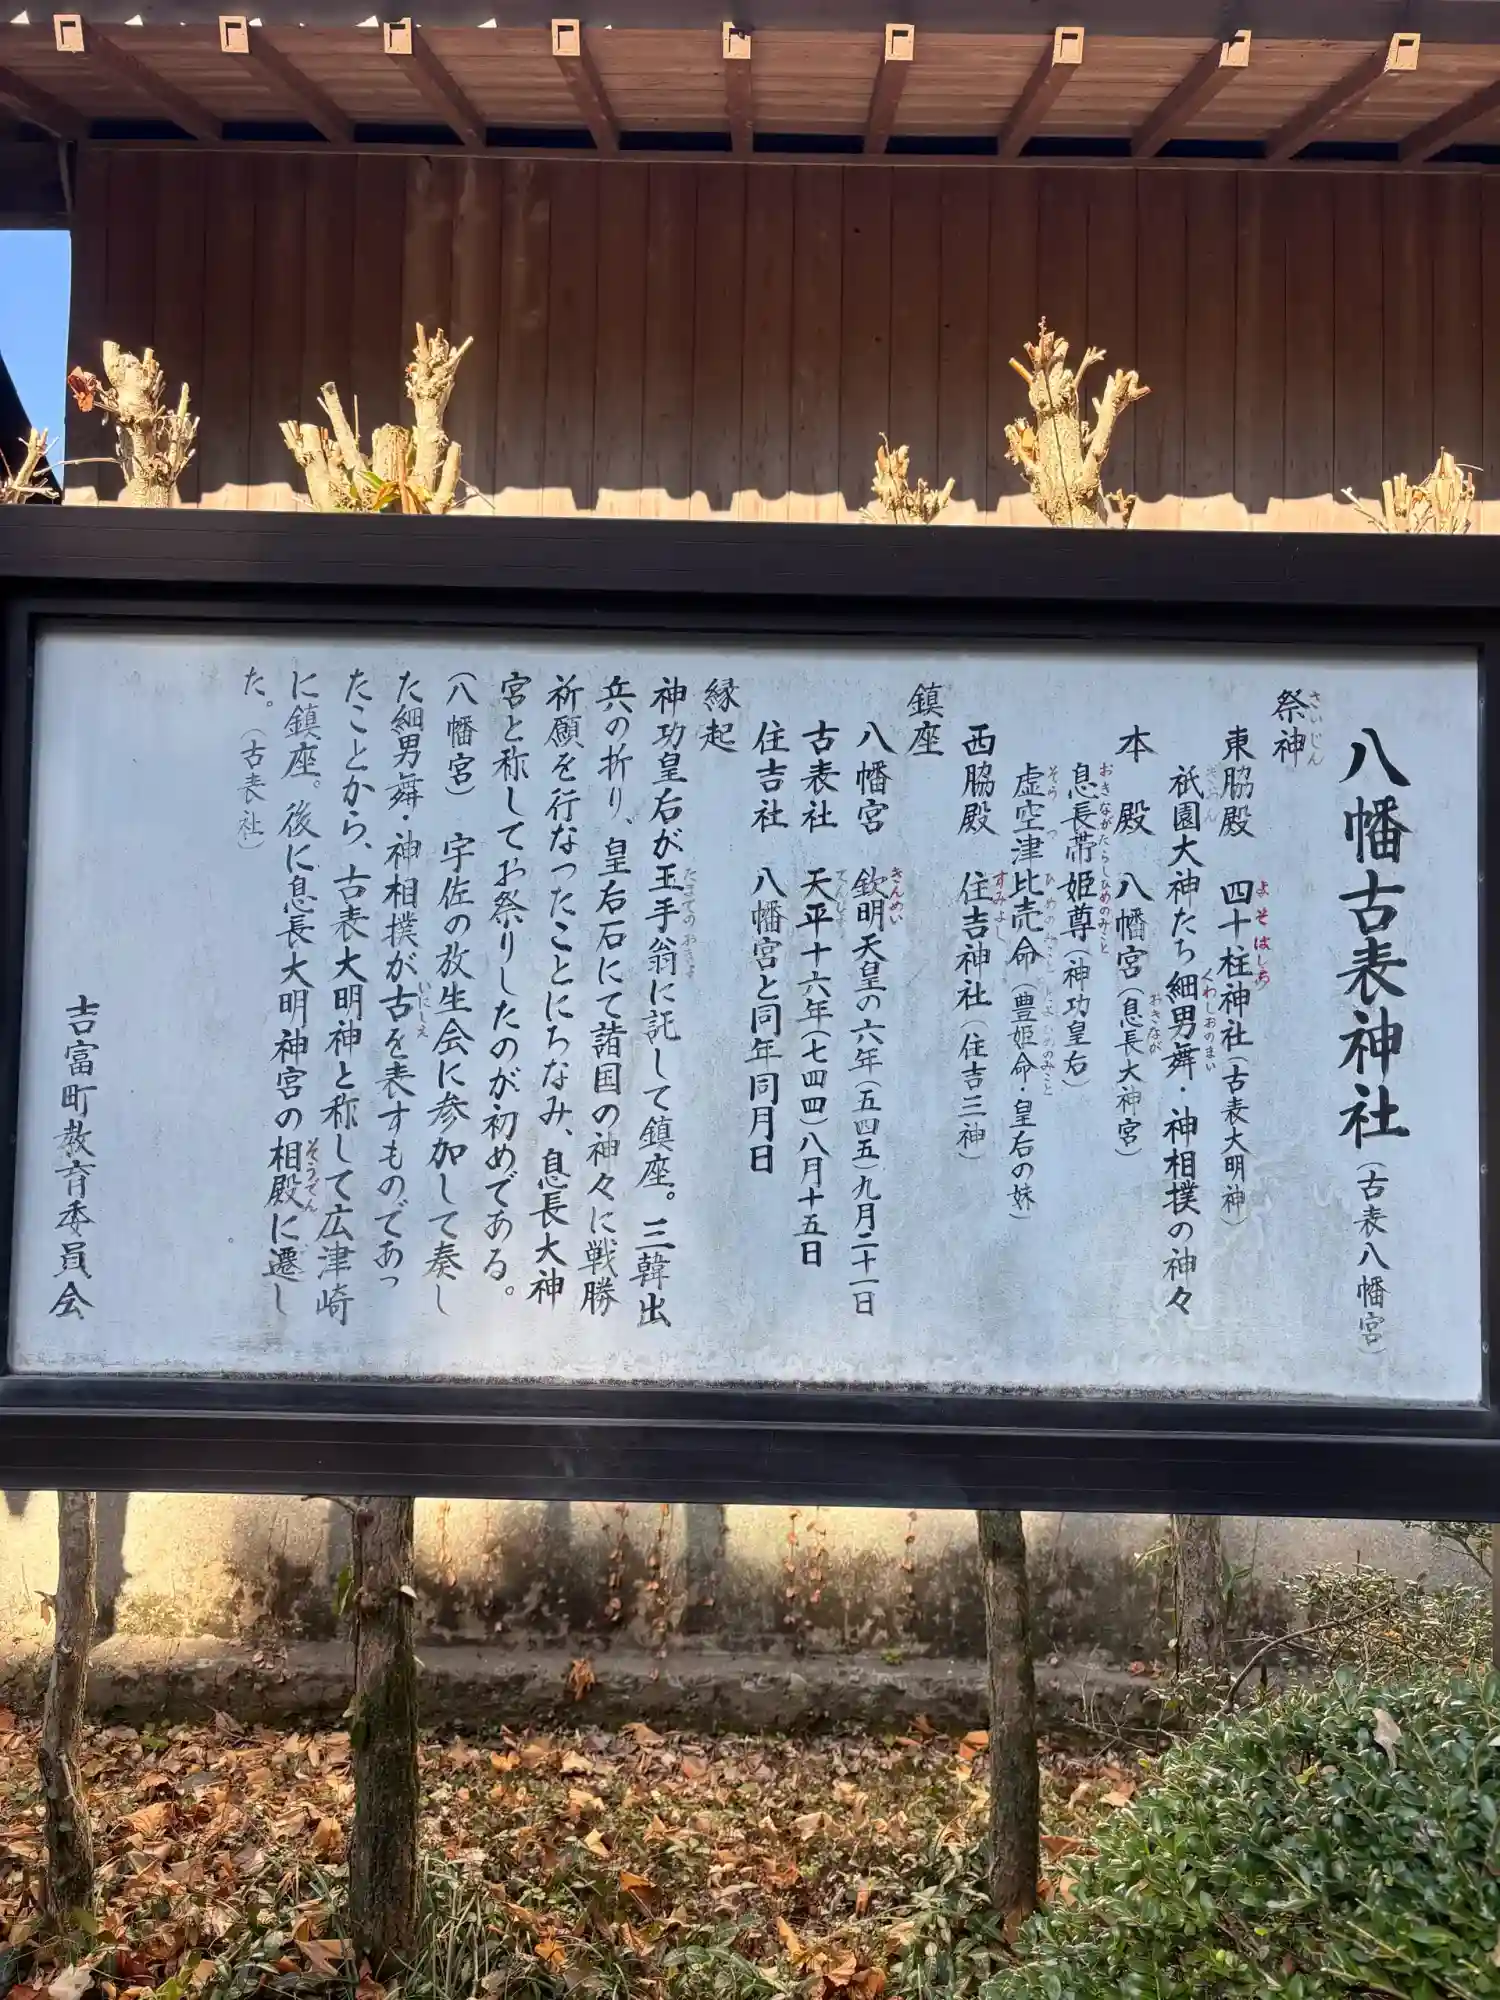 八幡古表神社（古表八幡宮）
祭神
さいじん
東脇殿　四十柱神社（古表大明神）
よそはしら
祇園大神たち細男舞・神相撲の神々
ぎおん　くわしおのまい
本　殿　八幡宮（息長大神宮）
おきなが
息長帯姫尊（神功皇后）
おきながたらしひめのみこと
虚空津比売命（豊姫命・皇后の妹）
そらつひめのみこと　とよひめのみこと
西脇殿　住吉神社（住吉三神）
すみよし
鎮座
八幡宮　欽明天皇の六年（五四五）九月二十一日
きんめい
古表社　天平十六年（七四四）八月十五日
てんぴょう
住吉社　八幡宮と同年同月日
縁起
神功皇后が玉手翁に託して鎮座。三韓出
たまてのおきな
兵の折り、皇后石にて諸国の神々に戦勝
祈願を行なったことにちなみ、息長大神
宮と称してお祭りしたのが初めである。
（八幡宮）　宇佐の放生会に参加して奏し
た細男舞・神相撲が古を表すものであっ
いにしえ
たことから、古表大明神と称して広津崎
に鎮座。後に息長大明神宮の相殿に遷し
そうでん
た。（古表社）
吉富町教育委員会